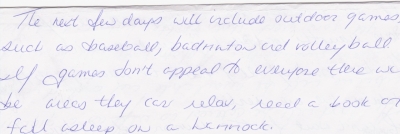 The next few days will include outdoor games,
such as baseball, badminton and volleyball
If games don't appeal to everyone there we
be areas they can relax, read a book or
fall asleep on a hammock.